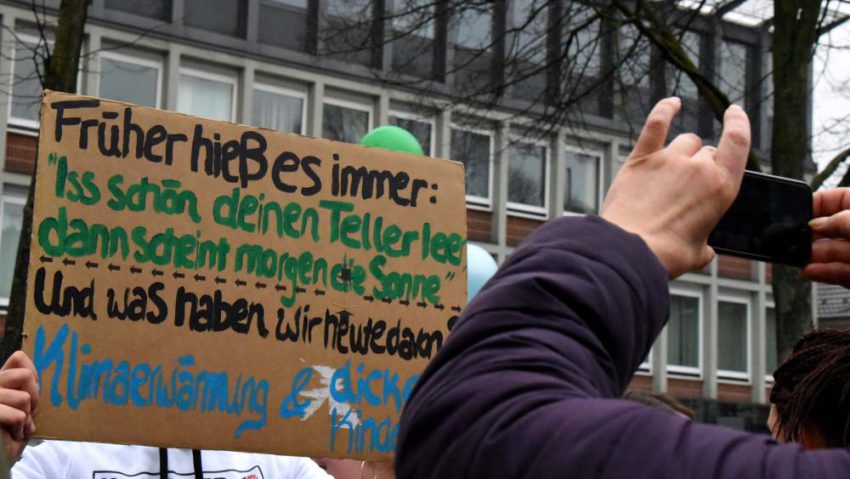 Früher hieß es immer:
"Iss schön deinen Teller leer
dann scheint morgen die Sonne"
Und was haben wir heute davon?
Klimaerwärmung &
dicke